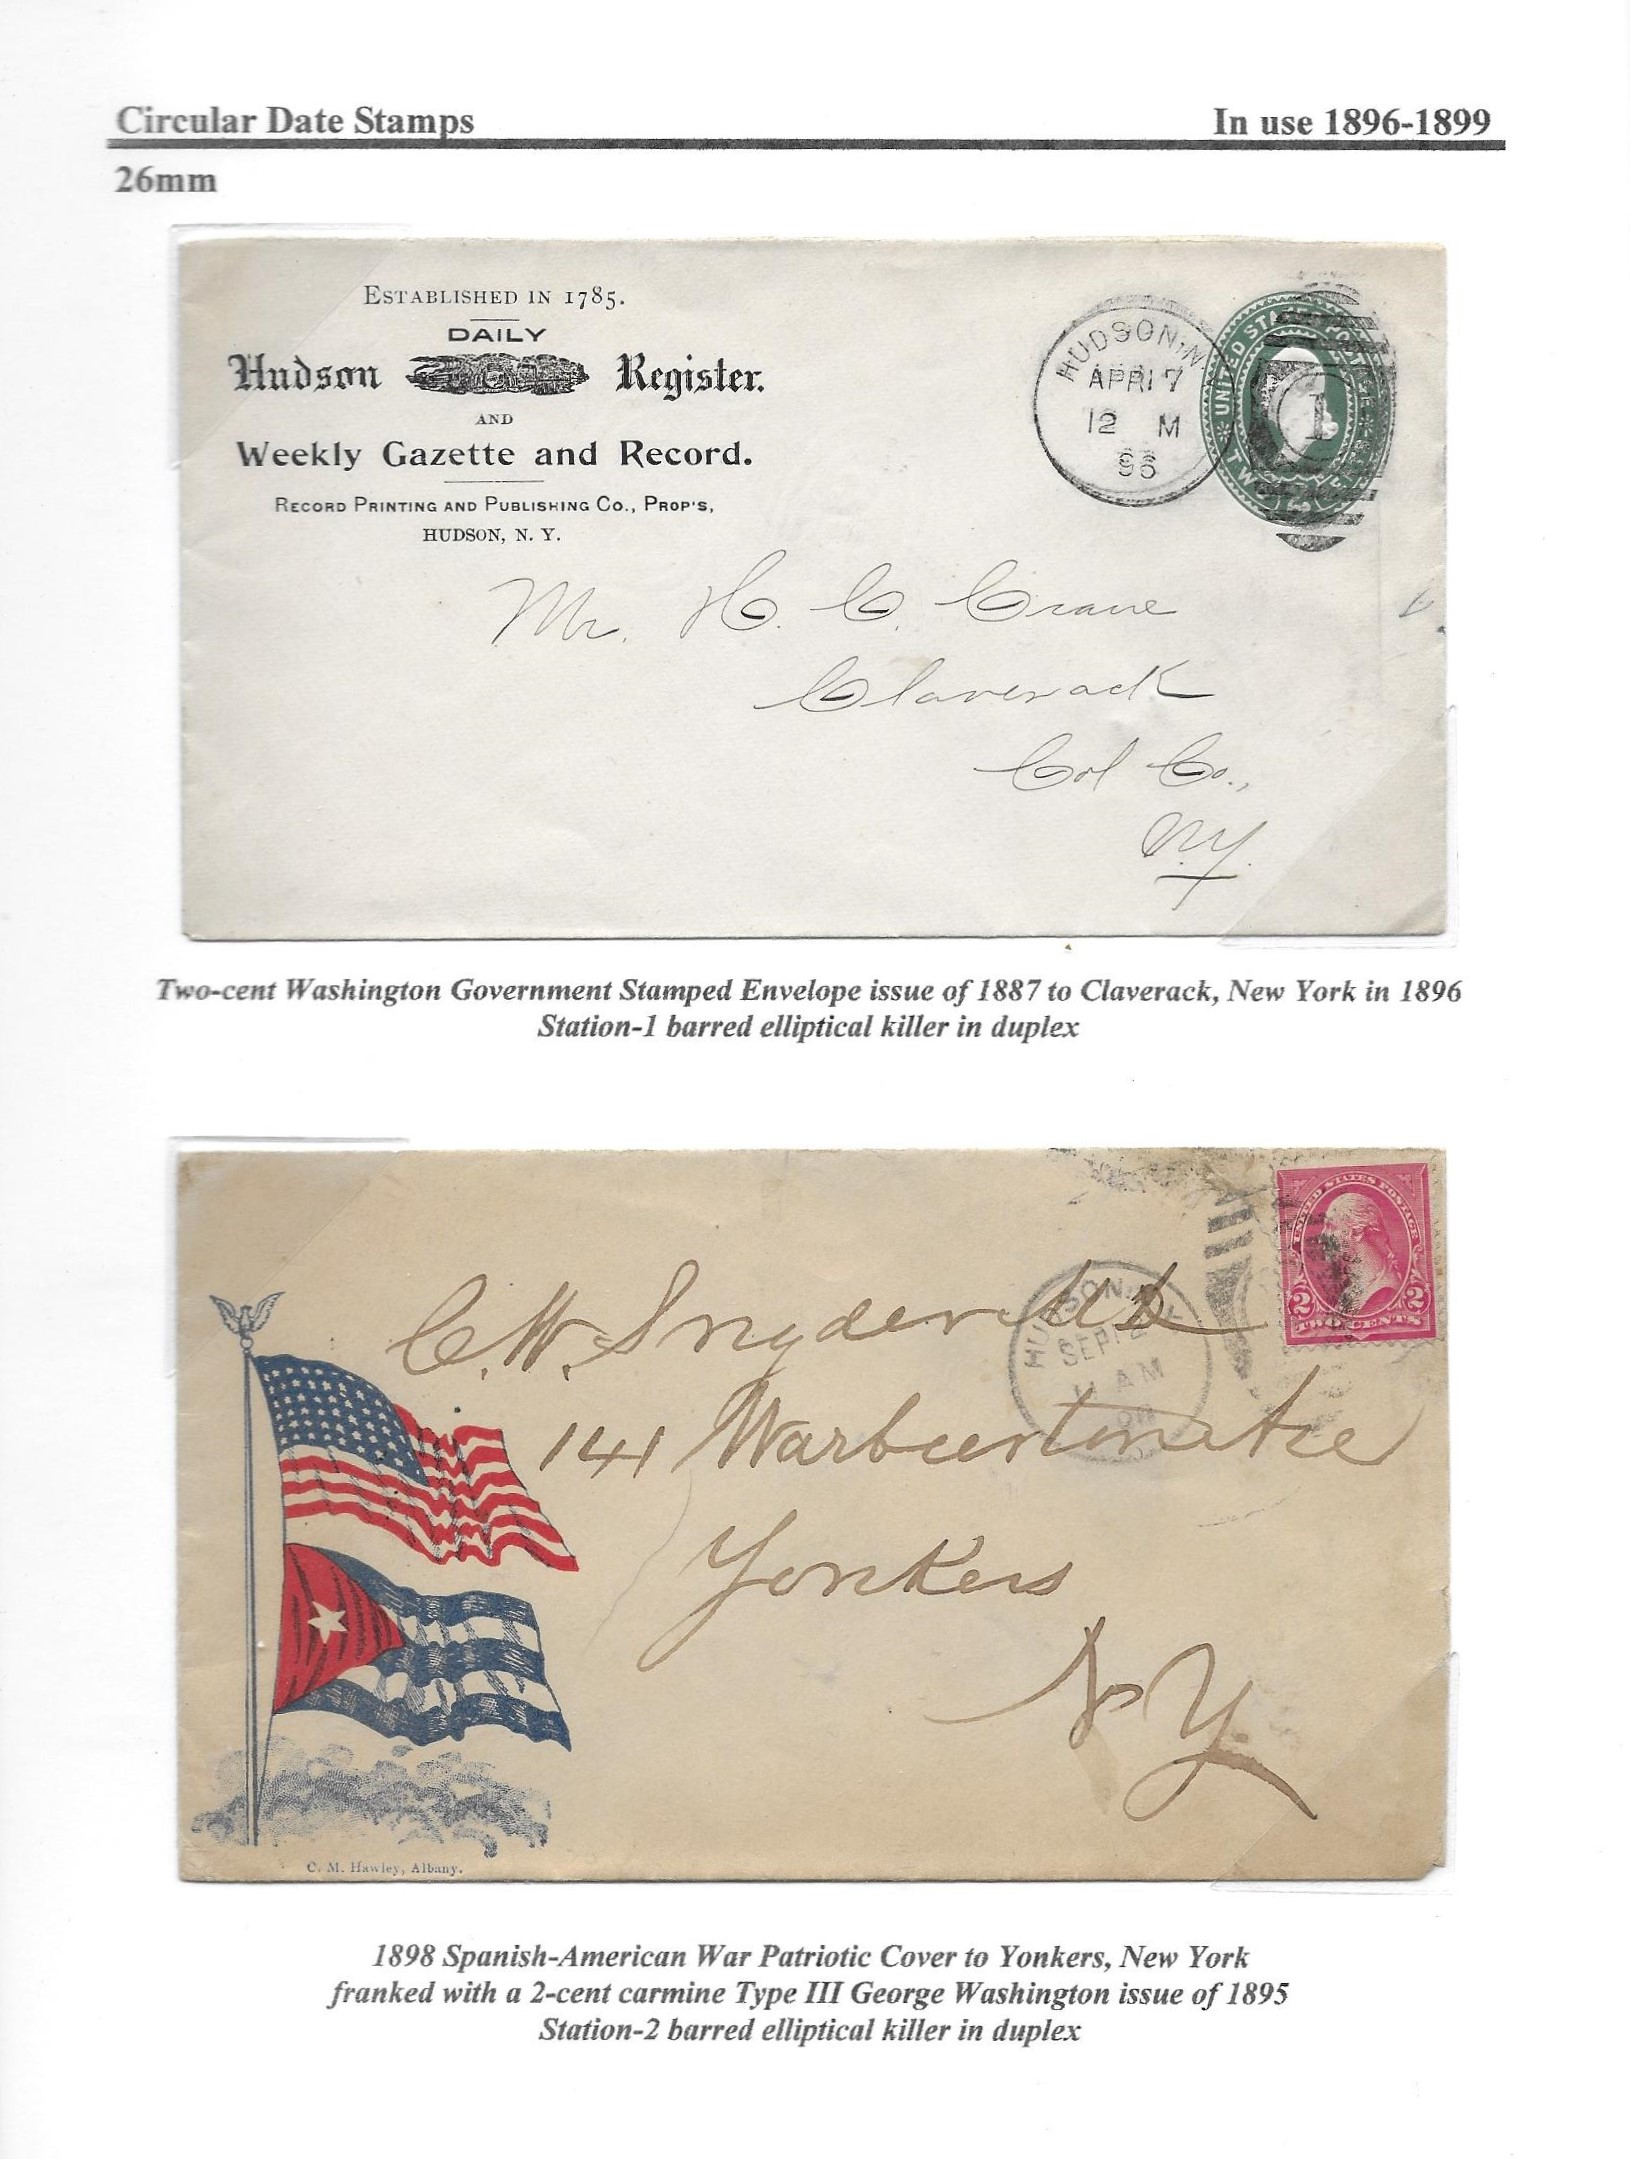 Circular Date Stamps
In use 1896-1899
26mm
ESTABLISHED IN 1785.
DAILY
Hudson Register.
AND
Weekly Gazette and Record.
RECORD PRINTING AND PUBLISHING CO., PROP'S,
HUDSON, N. Y.
HUDSON, N
APR 17
12 M
96
1
UNITED STA
TW
Mr. H. C. Crane
Claverack
Col Co.,
N.Y.
Two-cent Washington Government Stamped Envelope issue of 1887 to Claverack, New York in 1896
Station-1 barred elliptical killer in duplex
UNITED STATES POSTAGE
2 2
TWO CENTS
HUDSON
SEP 12
11 AM
98
C. W. Snyder MD
141 Warburton Ave
Yonkers
NY
C. M. Hawley, Albany.
1898 Spanish-American War Patriotic Cover to Yonkers, New York
franked with a 2-cent carmine Type III George Washington issue of 1895
Station-2 barred elliptical killer in duplex